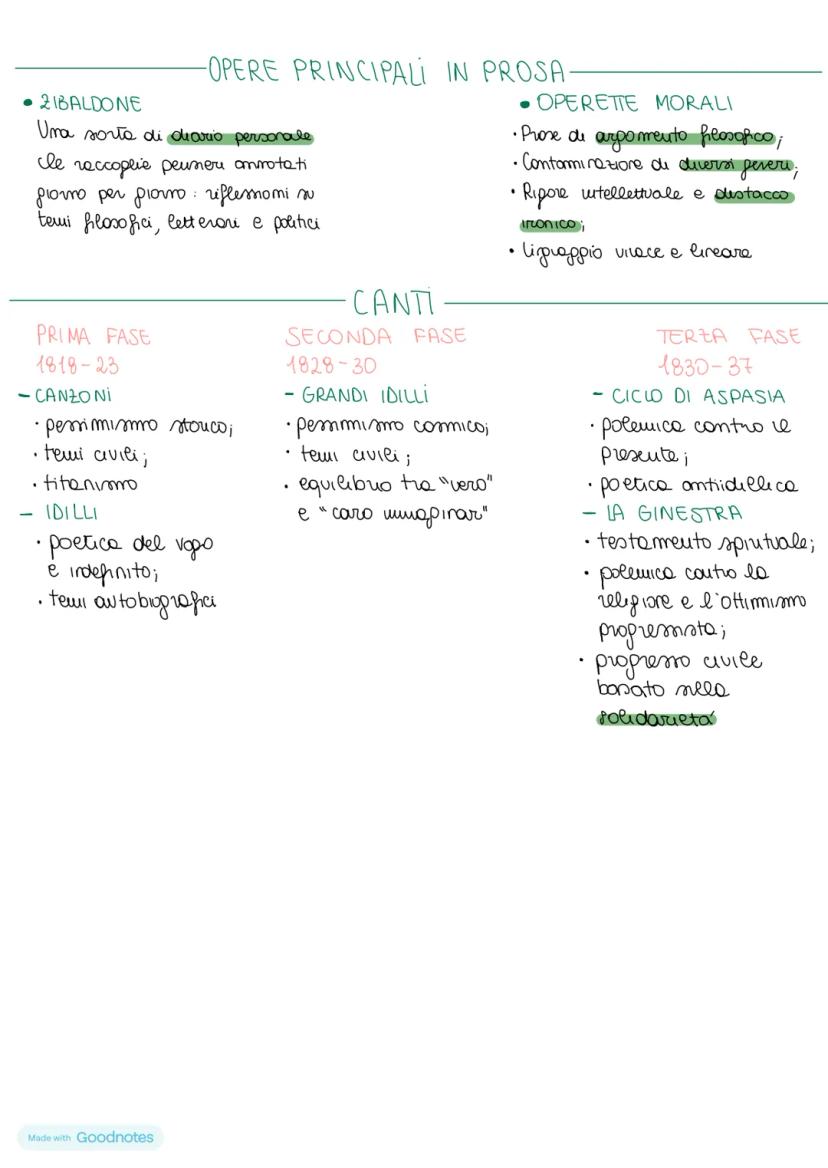 OPERE PRINCIPALI IN PROSA
• ZIBALDONE
Una sorta di diario personale
che raccoglie pensieri annotati
giorno per giorno: riflessioni su
temi filosofici, letterari e politici
• OPERETTE MORALI
• Prose di argomento filosofico;
• Contaminazione di diversi generi;
• Rigore intellettuale e distacco
ironico;
• linguaggio vivace e lineare
CANTI
PRIMA FASE
1818-23
- CANZONI
• pessimismo storico;
• temi civili;
• titanismo
- IDILLI
• poetica del vago
e indefinito;
• temi autobiografici
SECONDA FASE
1828-30
- GRANDI IDILLI
• pessimismo cosmico;
• temi civili;
• equilibrio tra "vero"
e "caro immaginar"
TERZA FASE
1830-37
- CICLO DI ASPASIA
• polemica contro il
presente;
• poetica antiidillica
- LA GINESTRA
• testamento spirituale;
• polemica contro la
religione e l'ottimismo
progressista;
• progresso civile
basato sulla
solidarietà
Made with Goodnotes